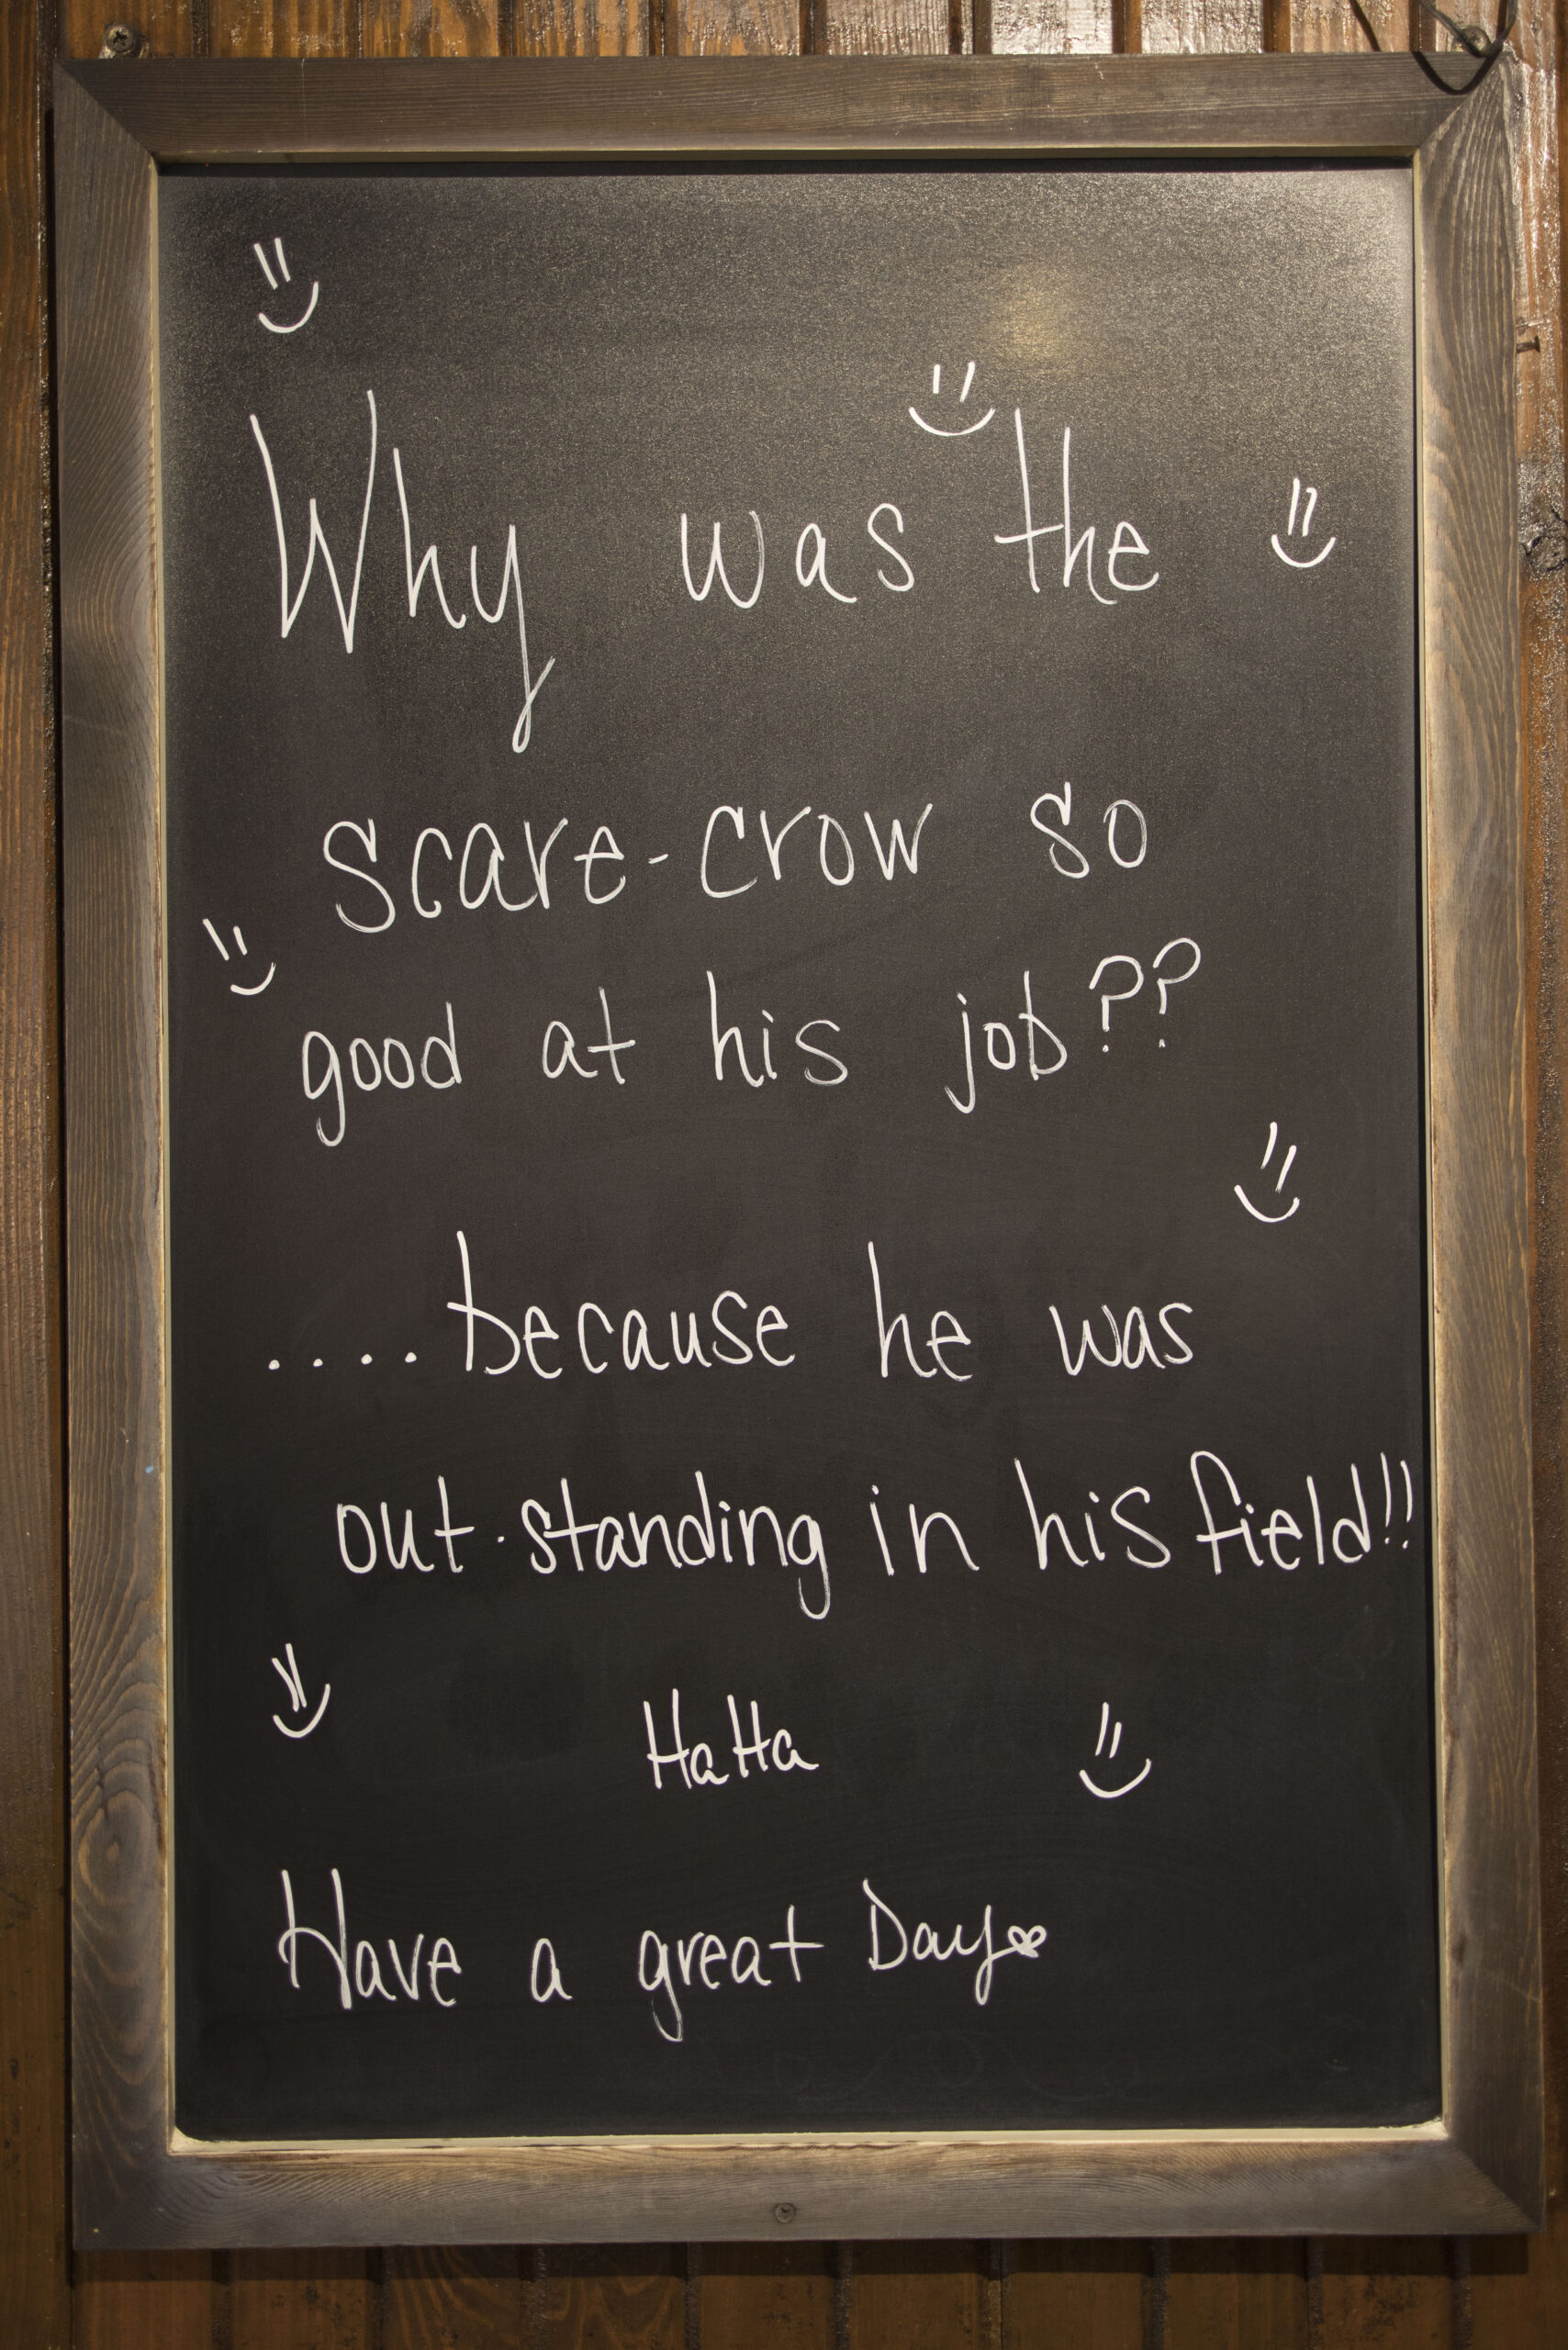 Why was the
scare-crow so
good at his job??
....because he was
out-standing in his field!!
HaHa
Have a great Day